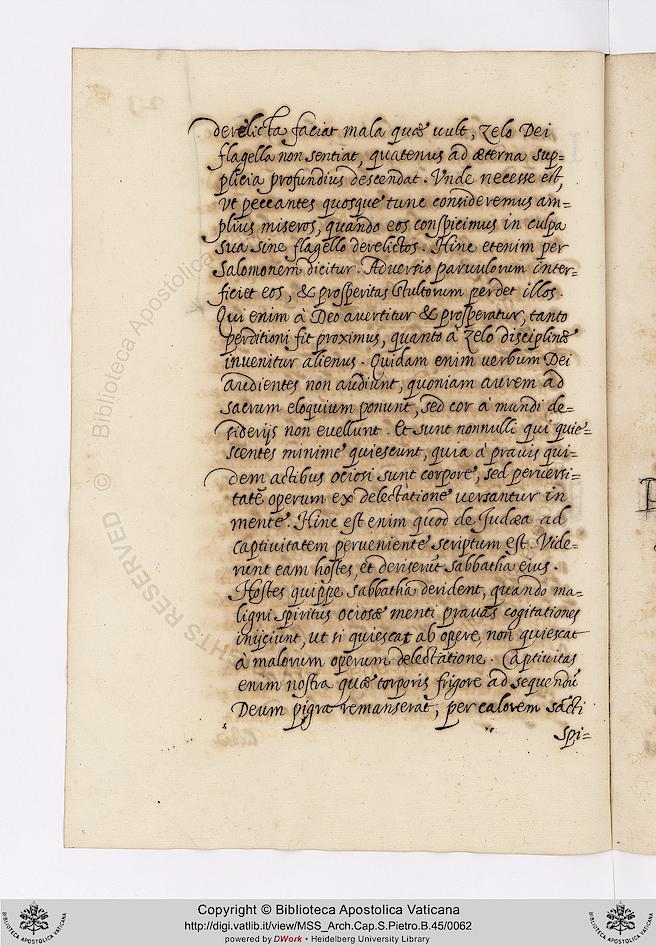 derelicta faciat mala quæ uult, zelo Dei
flagella non sentiat, quatenus ad æterna sup=
plicia profundius descendat. Vnde necesse est,
vt peccantes quosque tunc consideremus am=
plius miseros, quando eos conspicimus in culpa
sua sine flagello derelictos. Hinc etenim per
Salomonem dicitur. Aduersio paruulorum inter=
ficiet eos, & prosperitas stultorum perdet illos.
Qui enim à Deo auertitur & prosperatur, tanto
perditioni fit proximus, quanto à zelo disciplinæ
inuenitur alienus. Quidam enim uerbum Dei
audientes non audiunt, quoniam aurem ad
sacrum eloquium ponunt, sed cor à mundi de=
siderijs non euellunt. Et sunt nonnulli qui quie=
scentes minime quiescunt, quia à prauis qui=
dem actibus ociosi sunt corpore, sed peruersi=
tatē operum ex delectatione uersantur in
mente. Hinc est enim quod de Iudæa ad
captiuitatem perueniente scriptum est. Vide=
runt eam hostes, et deriserūt sabbatha eius.
Hostes quippe sabbatha derident, quando ma=
ligni spiritus ociosæ menti prauas cogitationes
inijciunt, ut si quiescat ab opere, non quiescat
à malorum operum delectatione. Captiuitas
enim nostra quæ torporis frigore ad sequendū
Deum pigra remanserat, per calorem sācti
spi=
Copyright © Biblioteca Apostolica Vaticana
http://digi.vatlib.it/view/MSS_Arch.Cap.S.Pietro.B.45/0062
powered by DWork • Heidelberg University Library
© Biblioteca Apostolica
HTS RESERVED
BIBLIOTECA APOSTOLICA VATICANA
BIBLIOTECA APOSTOLICA VATICANA